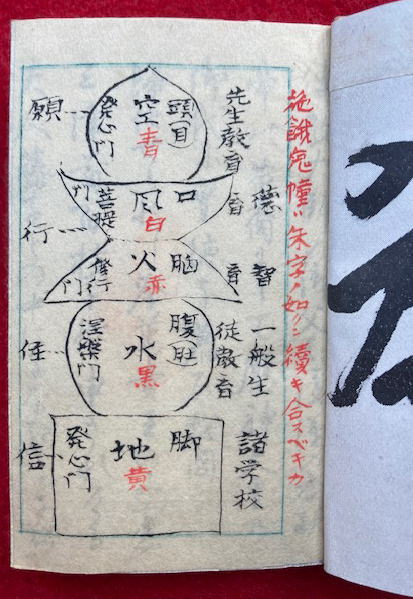 施餓鬼幢ハ朱字ノ如クニ續キ合スベキカ
先生教育
頭目
空青
発心門
願
徳育
口
風白
菩提門
行
智育
脳
火赤
修行門
一般生徒教育
腹肚
水黒
涅槃門
住
諸学校
脚
地黄
発心門
信